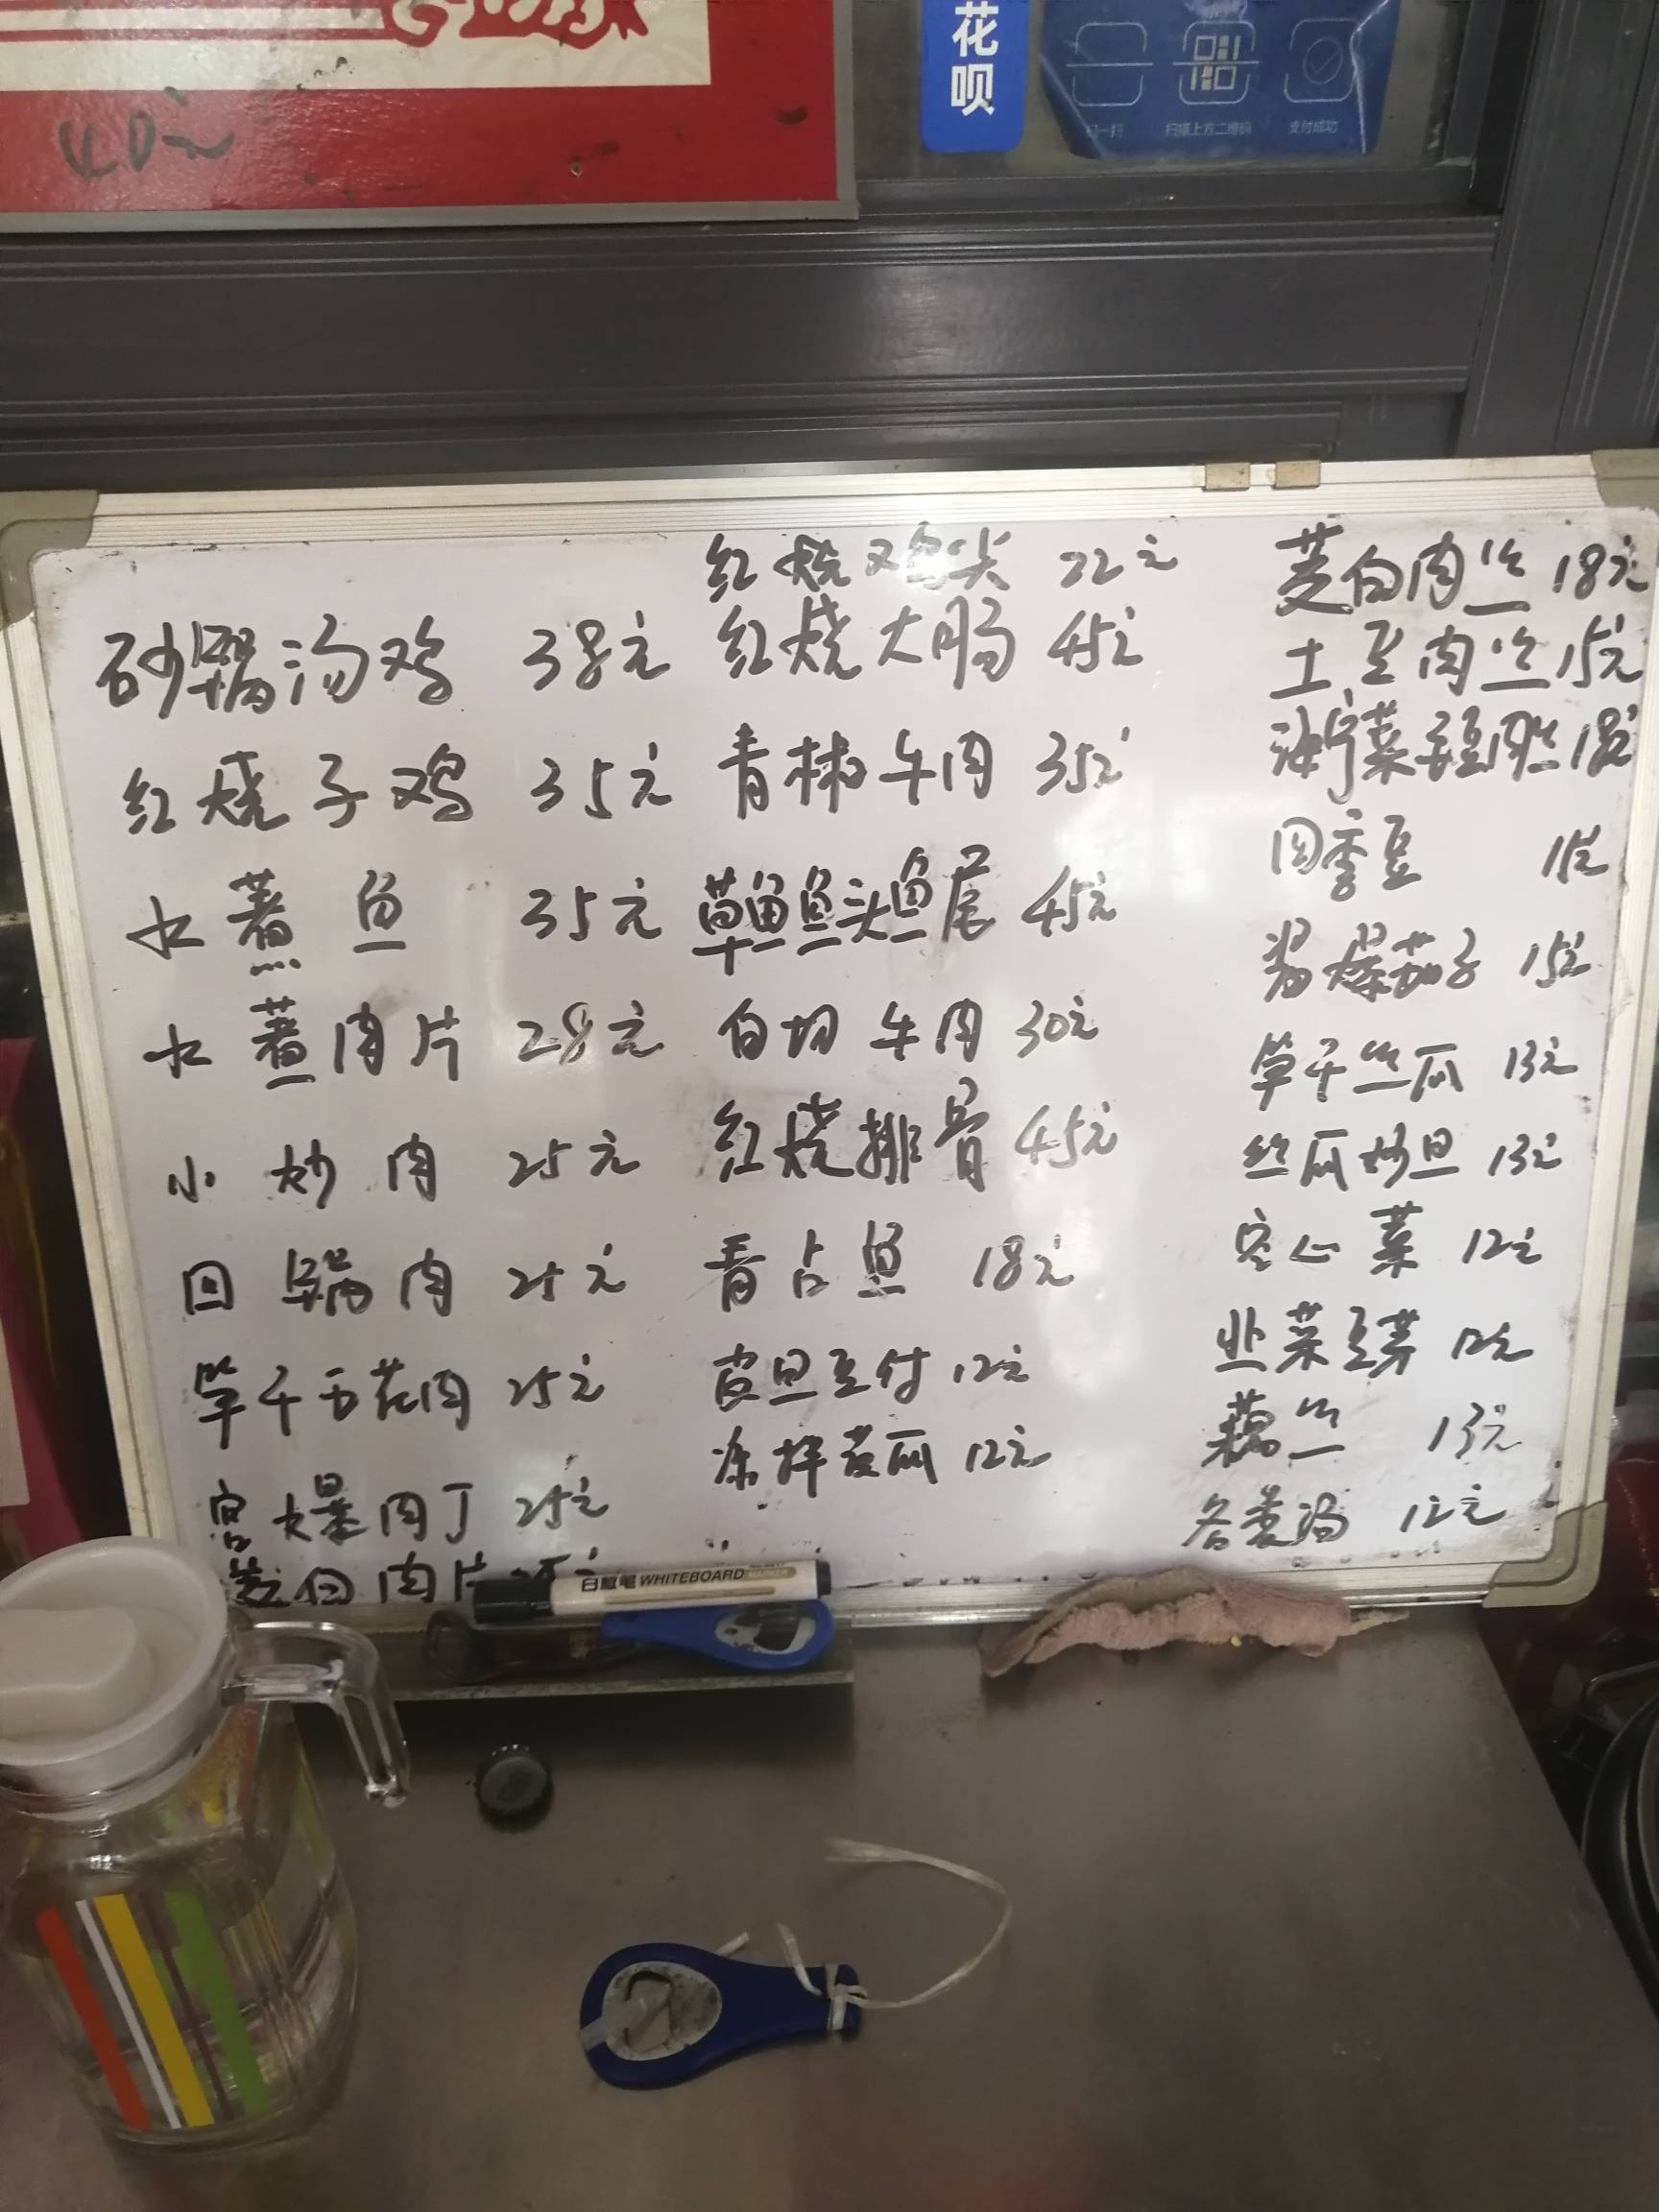 40元
花呗
扫一扫
扫描上方二维码
支付成功
砂锅汤鸡 38元
红烧子鸡 35元
水煮鱼 35元
水煮肉片 28元
小炒肉 25元
回锅肉 25元
笋干五花肉 25元
宫爆肉丁 25元
茭白肉片
红烧鸡尖 22元
红烧大肠 45元
青椒牛肉 35元
草鱼鱼头鱼尾 45元
白切牛肉 30元
红烧排骨 45元
青占鱼 18元
皮旦豆付 12元
凉拌黄瓜 12元
茭白肉丝 18元
土豆肉丝 15元
菜毛豆肉丝 18元
四季豆
爆茄子 15元
笋干丝瓜 13元
丝瓜炒旦 13元
空心菜 12元
韭菜豆芽 12元
藕丝 13元
各类汤 12元
白板笔 WHITEBOARD MARKER